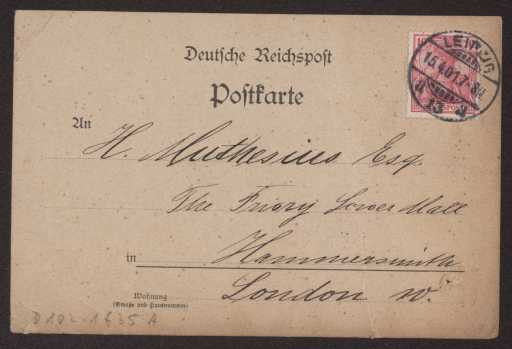 Deutsche Reichspost
Postkarte
An
H. Muthesius Esq.
The Priory Lower Mall
in Hammersmith
London W.
Wohnung
(Straße und Hausnummer)
LEIPZIG
15.4.01.7-8N
13
D 102-1635 A